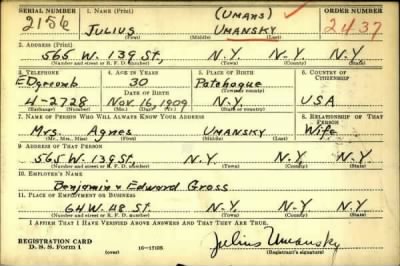 SERIAL NUMBER 1. NAME (Print) (UMANS) ORDER NUMBER
2156 JULIUS UMANSKY 2437
(First) (Middle) (Last)
2. ADDRESS (Print)
565 W. 139 St, N.Y. N.Y. N.Y.
(Number and street or R. F. D. number) (Town) (County) (State)
3. TELEPHONE 4. AGE IN YEARS 5. PLACE OF BIRTH 6. COUNTRY OF CITIZENSHIP
EDgecomb 30 Patchogue
DATE OF BIRTH (Town or county)
4-2728 Nov. 16, 1909 N.Y. USA
(Exchange) (Number) (Mo.) (Day) (Yr.) (State or country)
7. NAME OF PERSON WHO WILL ALWAYS KNOW YOUR ADDRESS 8. RELATIONSHIP OF THAT PERSON
Mrs. Agnes UMANSKY Wife
(Mr., Mrs., Miss) (First) (Middle) (Last)
9. ADDRESS OF THAT PERSON
565 W. 139 St. N.Y. N.Y. N.Y.
(Number and street or R. F. D. number) (Town) (County) (State)
10. EMPLOYER'S NAME
Benjamin & Edward Gross
11. PLACE OF EMPLOYMENT OR BUSINESS
64 W. 48 St. N.Y. N.Y. N.Y.
(Number and street or R. F. D. number) (Town) (County) (State)
I AFFIRM THAT I HAVE VERIFIED ABOVE ANSWERS AND THAT THEY ARE TRUE.
REGISTRATION CARD Julius Umansky
D. S. S. Form 1 (over) 16-17105 (Registrant's signature)